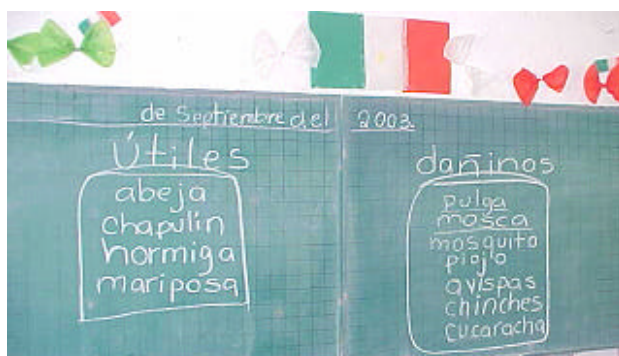 de Septiembre del 2003
Útiles
abeja
chapulín
hormiga
mariposa
dañinos
pulga
mosca
mosquito
piojo
avispas
chinches
cucaracha